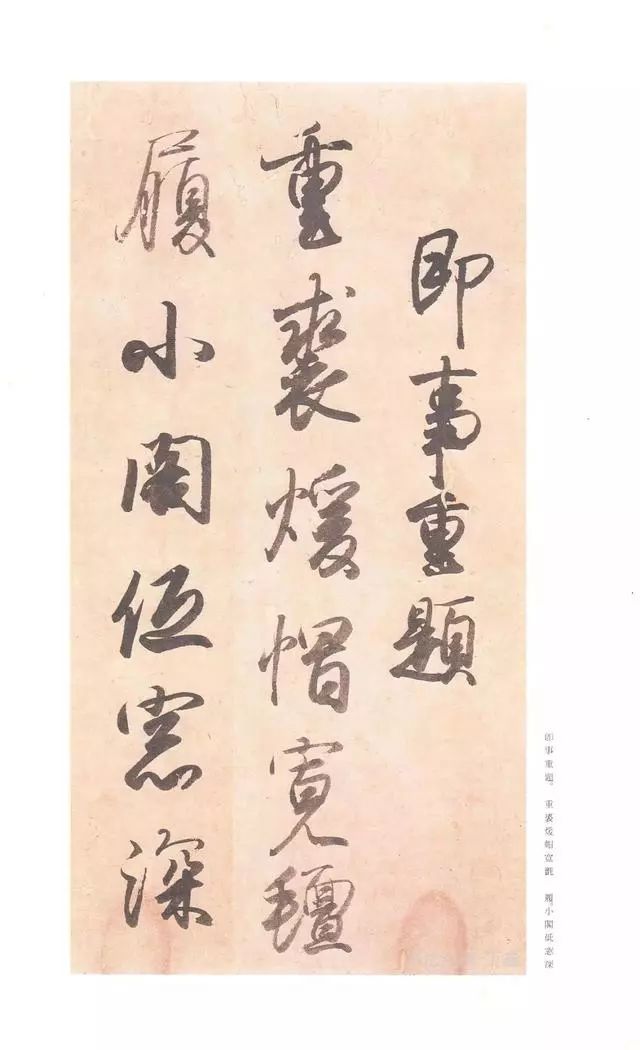 即事重題
重裘煖帽寬氊
履小閣低窓深
即事重題。重裘煖帽寬氊 履小閣低窓深